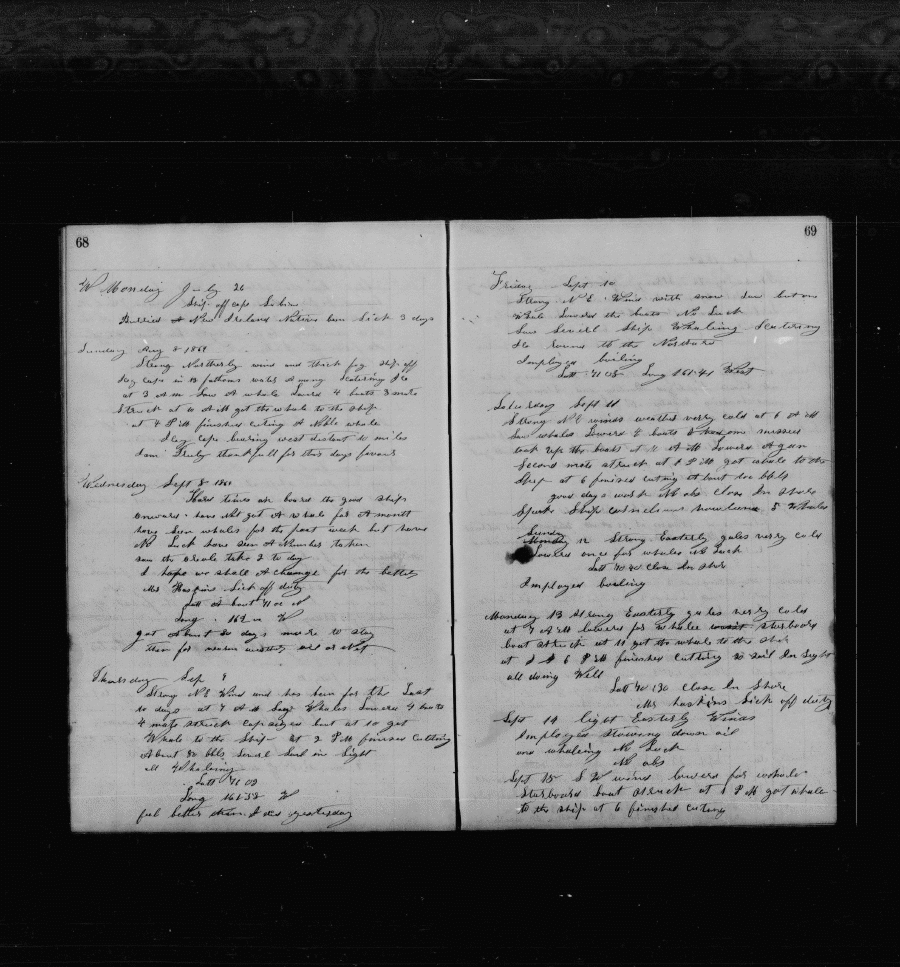 68
W Monday July 26
Ship off cape
Burried A New Ireland Native been Sick 3 days
Sunday Aug 8 1869
Strong Northerly wind and thick fog ship off
Icy cape in 13 fathoms water Among Scatering Ice
at 3 A M Saw A whale Lowed 4 boats 3 mate
Struck at 10 A M got the whale to the ship
at 4 P M finished cuting A Noble whale
Icy cape buring west distent 10 miles
I am Truly thankfull for this days favour
Wednesday Sept 8
Hard times on board the good ship
onward have Not got A whale for A month
have Seen whales for the past week but have
No Luck have seen A Number taken
saw the take 2 to day
I hope we shall A change for the better
Mr Haskins Sick off duty
Latt A bout 71 00 N
Long 162 W
got About 20 days more to stay
then for
Thursday Sep 9
Strong N E Wind and has been for the Last
10 days at 7 A M Saw Whales Lowered 4 boats
4 mate struck capsized but at 10 got
Whale to the Ship At 2 P M finised Cutting
About 80 bbls Sail in Sight
all Whaleing
Latt 71 08
Long 161-38 W
feel better than I did yesterday
69
Friday Sept 10
Strong N E Wind with snow Saw but one
Whale Lowered the boats No Luck
Saw Severl Ship Whaleing Scatering
Ice round to the Norward
Imployed boiling
Latt 71 08 Long 161-41 West
Saturday Sept 11
Strong N E winds weather very cold at 6 A M
Saw whales Lowerd boats one missed
took up the boats at 10 A M Lowerd Again
Second mate struck at 1 P M got whale to the
Ship at 6 finised cuting About 100 bbls
good days work No obs Close In Shore
Spoke Ship Cornelious howland 5 Whales
Sunday
Monday 12 Strong Easterly gales very cold
Lowerd once for whales No Luck
Latt 70 80 Close In Shore
Imployed boiling
Monday 13 Strong Easterly gales very cold
at 7 A M lowerd for whale starboard
boat struck at 11 got the whale to the ship
at 6 P M finished Cutting 20 Sail In Sight
all doing Well
Latt 70 130 Close In Shore
Mr haskins Sick off duty
Sept 14 light Easterly Winds
Imployed Stowing down oil
one whaleing No Luck
No obs
Sept 15 S W wind lowerd for whale
Starboard boat Struck at 1 P M got whale
to the ship at 6 finished cuting